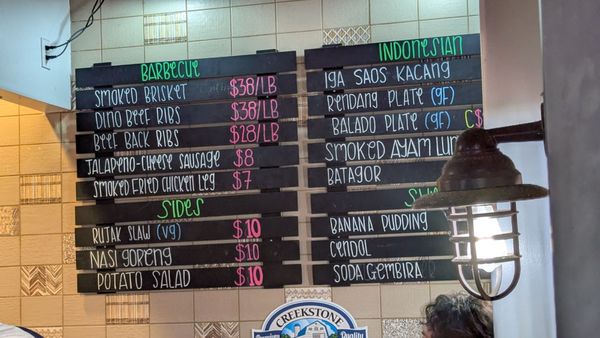 BARBECUE
SMOKED BRISKET $38/LB
DINO BEEF RIBS $38/LB
BEEF BACK RIBS $28/LB
JALAPENO-CHEESE SAUSAGE $8
SMOKED FRIED CHICKEN LEG $7
SIDES
RUJAK SLAW (VG) $10
NASI GORENG $10
POTATO SALAD $10
INDONESIAN
IGA SAOS KACANG
RENDANG PLATE (GF)
BALADO PLATE (GF) C $
SMOKED AYAM
BATAGOR
BANANA PUDDING
CENDOL
SODA GEMBIRA
CREEKSTONE